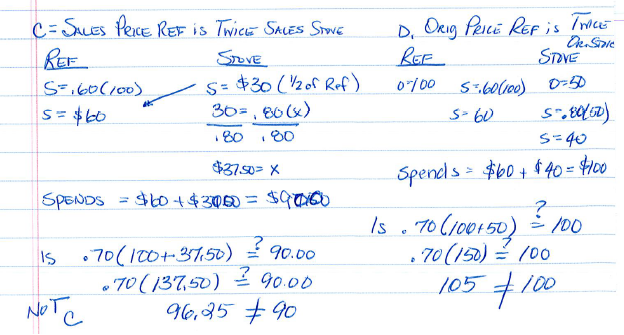 C = SALES PRICE REF IS TWICE SALES STOVE
REF STOVE
S = .60(100) S = $30 (1/2 of Ref)
S = $60 30 = .80(x)
.80 .80
$37.50 = x
SPENDS = $60 + $30 = $90
Is .70(100+37.50) ?= 90.00
.70(137.50) ?= 90.00
NOT C 96.25 ≠ 90
D. ORIG PRICE REF is TWICE
OR. STOVE
REF STOVE
O=100 S=.60(100) O=50
S=60 S=.80(50)
S=40
Spends = $60 + $40 = $100
Is .70(100+50) ?= 100
.70(150) ?= 100
105 ≠ 100